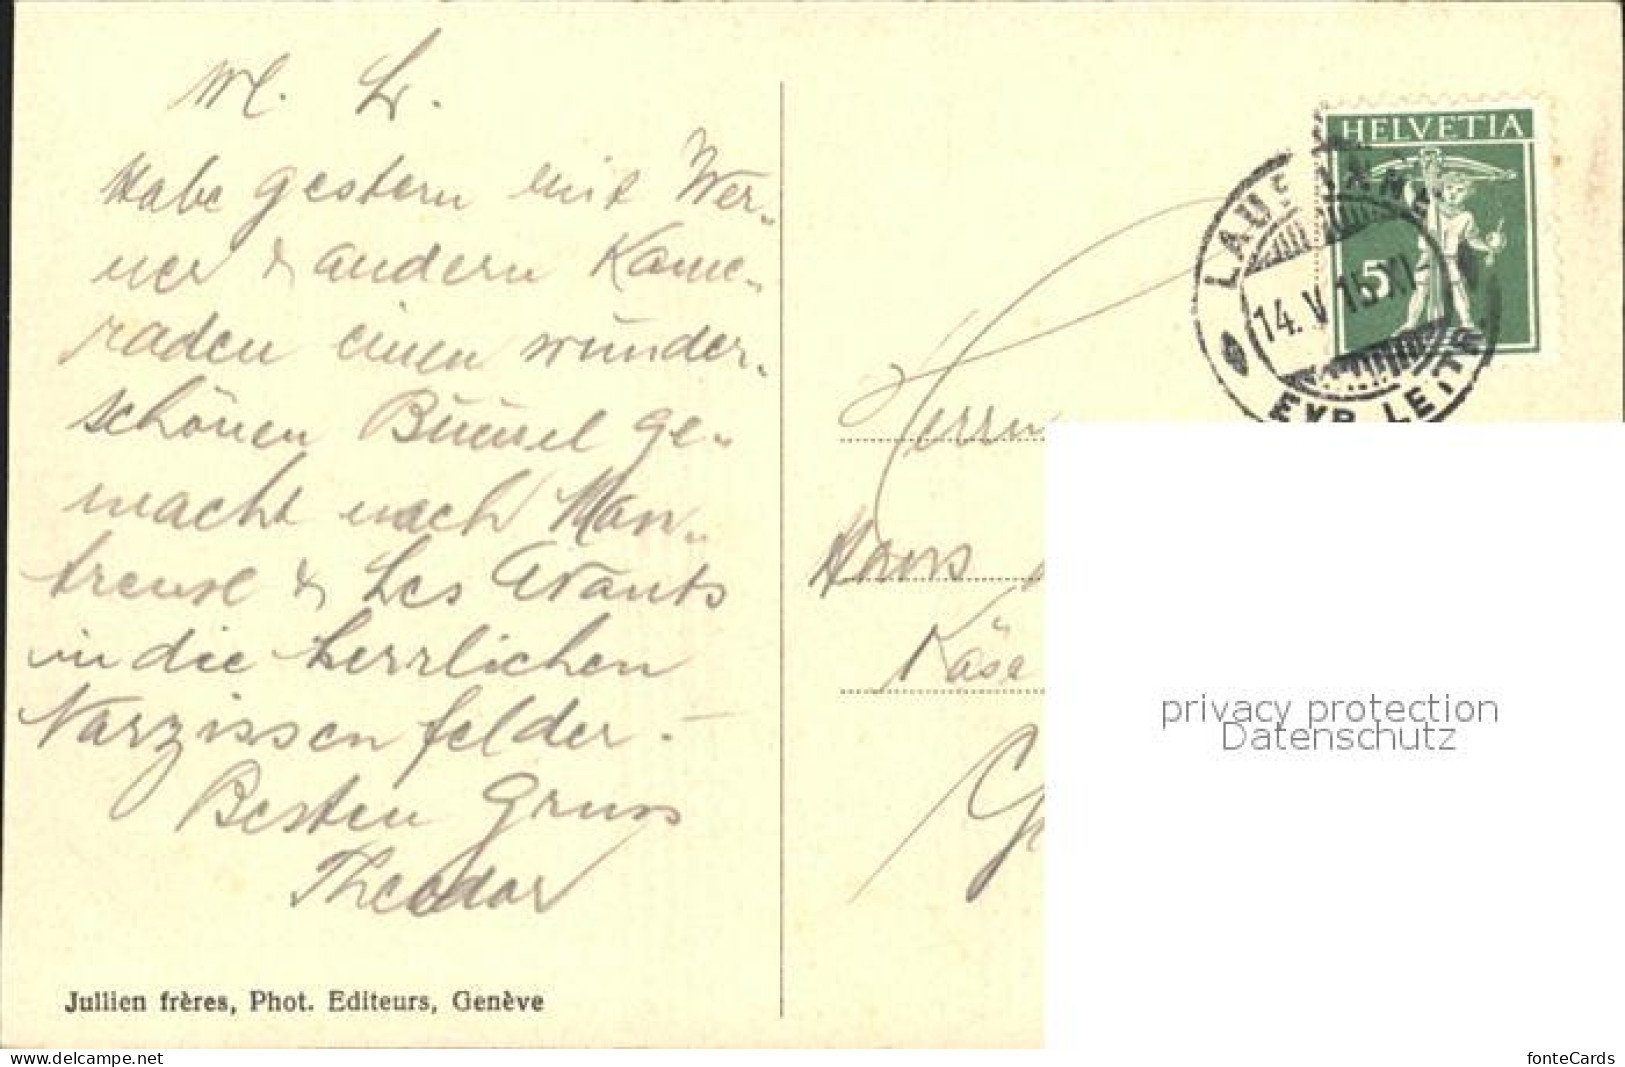 M. Lr.
Habe gestern mit Wer-
ner & andern Kame-
raden einen wunder-
schönen Bummel ge-
macht nach Mon-
treux & Les Avants
in die herrlichen
Narzissenfelder. –
Besten Gruss
Theodor
Jullien frères, Phot. Editeurs, Genève
HELVETIA
5
LAUSANNE
14. V. 15. XI
EXP. LETTR
Herrn
Käse
privacy protection
Datenschutz
www.delcampe.net
fonteCards